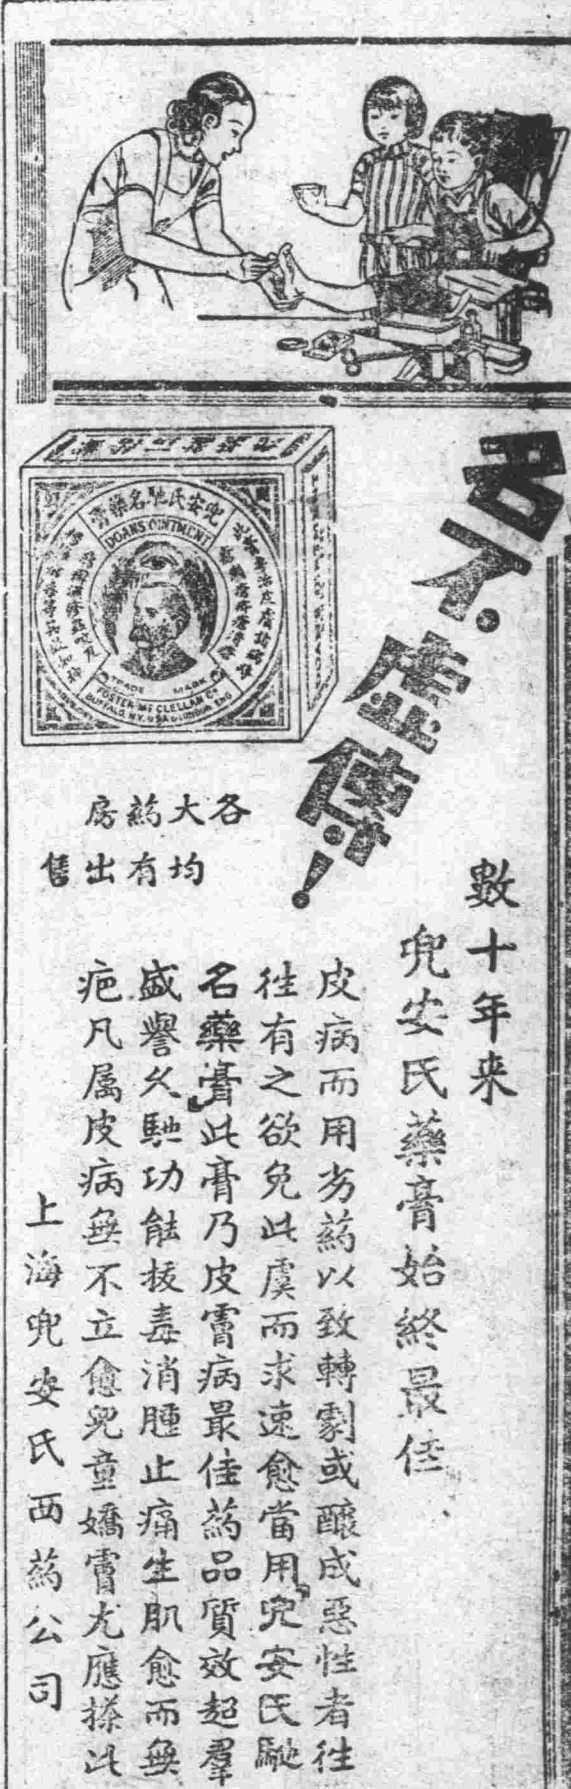 名不虛傳！
數十年来
兜安氏藥膏始終最佳
皮病而用劣葯以致轉劇或釀成惡性者往
往有之欲免此虞而求速愈當用兜安氏馳
名藥膏此膏乃皮膚病最佳葯品質效超羣
盛譽久馳功能拔毒消腫止痛生肌愈而無
疤凡属皮病無不立愈兒童嬌膚尤應搽此
上海兜安氏西葯公司
各大葯房
均有出售
兜安氏馳名藥膏
DOANS OINTMENT
TRADE MARK
FOSTER-MCCLELLAN CO
BUFFALO, N.Y. USA & LONDON, ENG